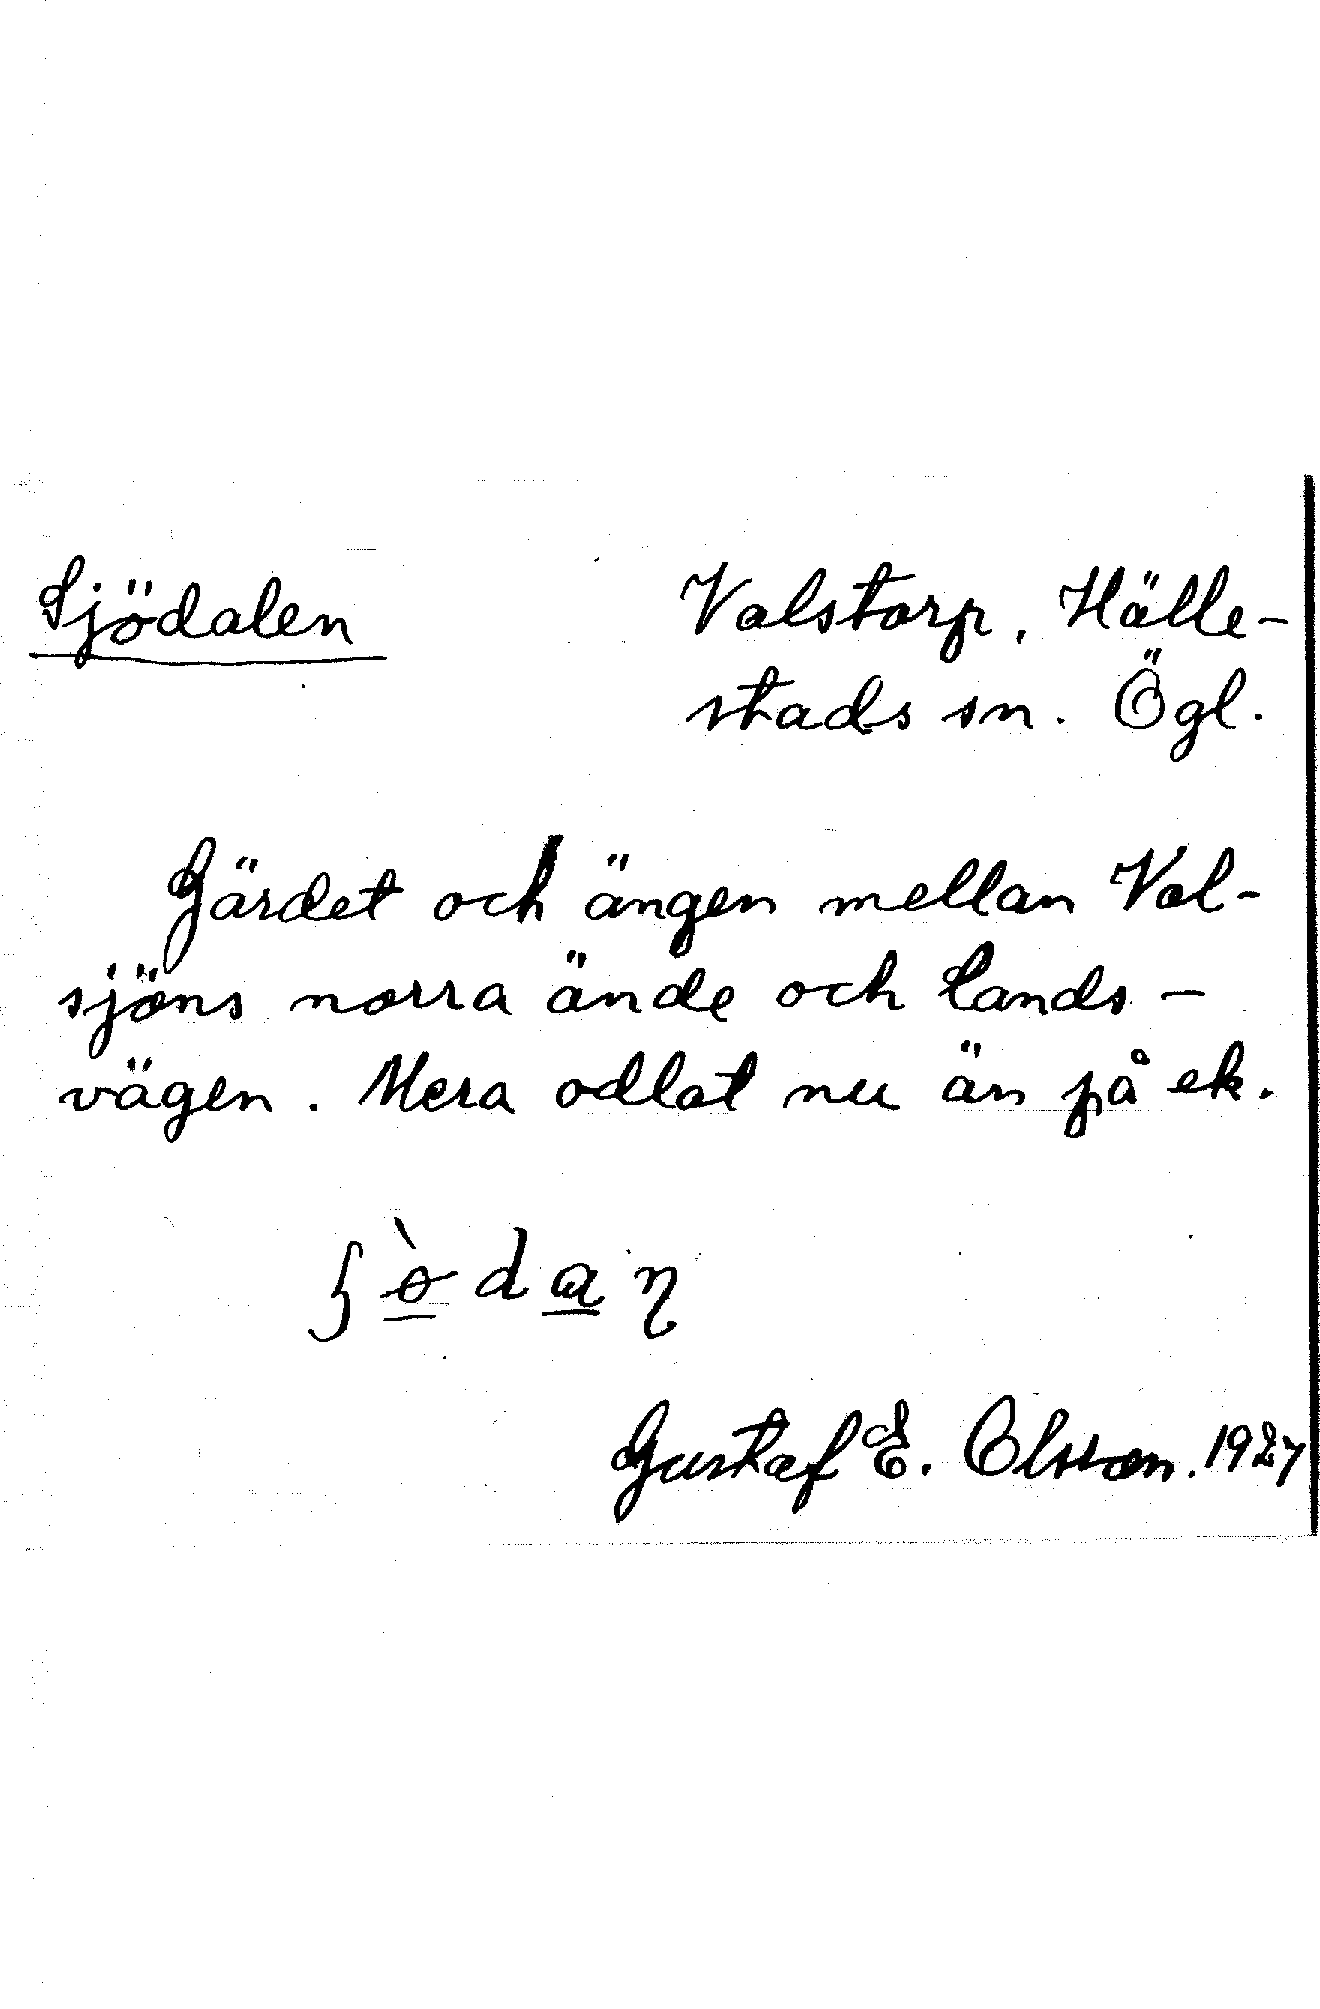 Sjödalen
Valstorp, Hälle-
stads sn. Ögl.
Gärdet och ängen mellan Val-
sjöns norra ände och lands-
vägen. Mera odlat nu än på ek.
ʃø̀daɳ
Gustaf E. Olsson. 1927